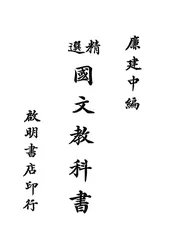 廉建中編
精選
國文教科書
啟明書店印行